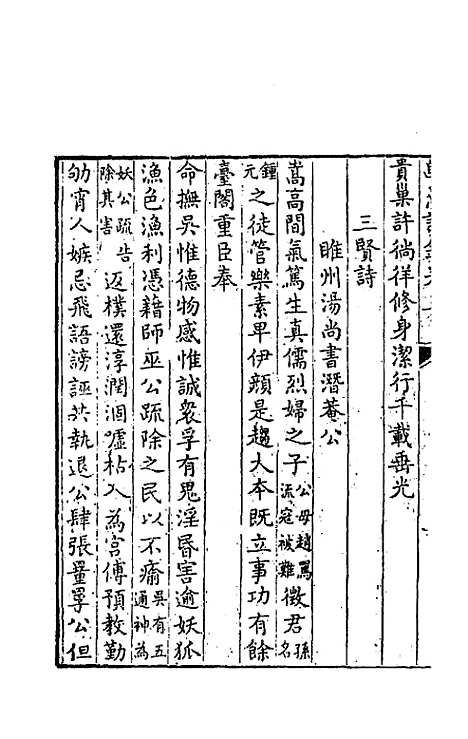 貴巢許徜徉修身潔行千載垂光
三賢詩
睢州湯尚書潛菴公
嵩高間氣篤生真儒烈婦之子公母趙罵流寇被難徵君孫名
鍾元之徒管樂素卑伊顏是趨大本既立事功有餘
臺閣重臣奉
命撫吳惟德物感惟誠衆孚有鬼淫昏害逾妖狐
漁色漁利憑藉師巫公疏除之民以不痡吳有五通神為
妖公疏告除其害返樸還淳潤涸噓枯入為宮傅預教勤
劬宵人嫉忌飛語謗誣共執退公肆張畺罦公但